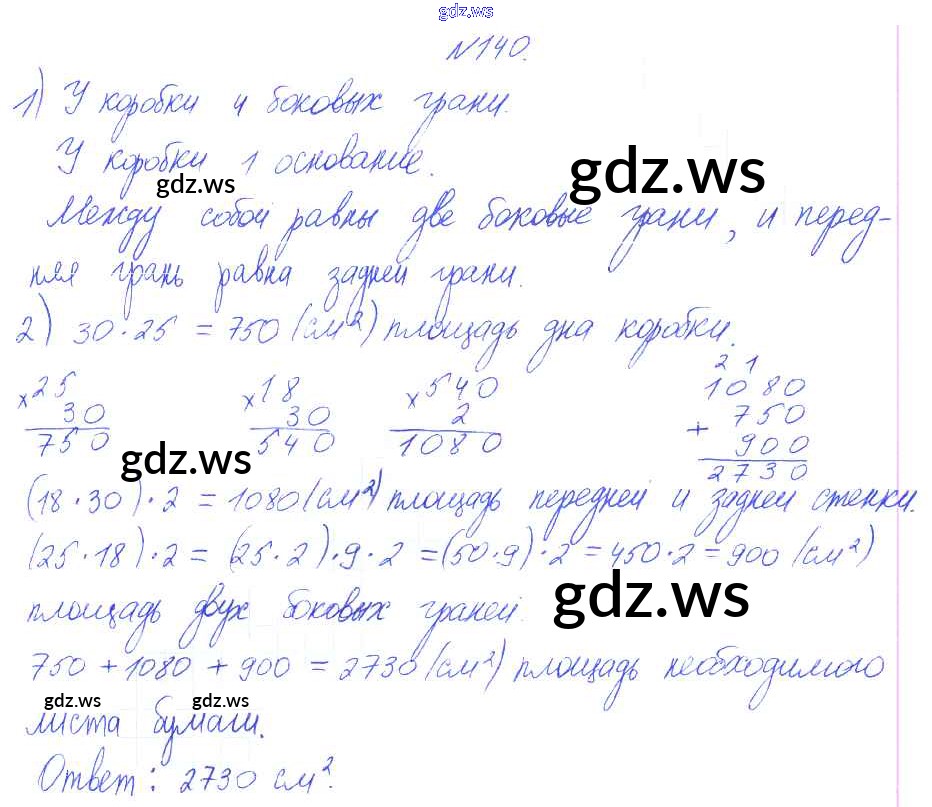 gdz.ws
№140.
1) У коробки 4 боковых грани.
У коробки 1 основание.
gdz.ws
gdz.ws
Между собой равны две боковые грани, и перед-
няя грань равна задней грани.
2) 30·25 = 750 (см²) площадь дна коробки.
2 1
×25 ×18 ×540 1080
30 30 2 + 750
750 540 1080 900
2730
gdz.ws
(18·30)·2 = 1080 (см²) площадь передней и задней стенки.
(25·18)·2 = (25·2)·9·2 = (50·9)·2 = 450·2 = 900 (см²)
площадь двух боковых граней.
gdz.ws
750 + 1080 + 900 = 2730 (см²) площадь необходимого
gdz.ws gdz.ws
листа бумаги.
Ответ: 2730 см².